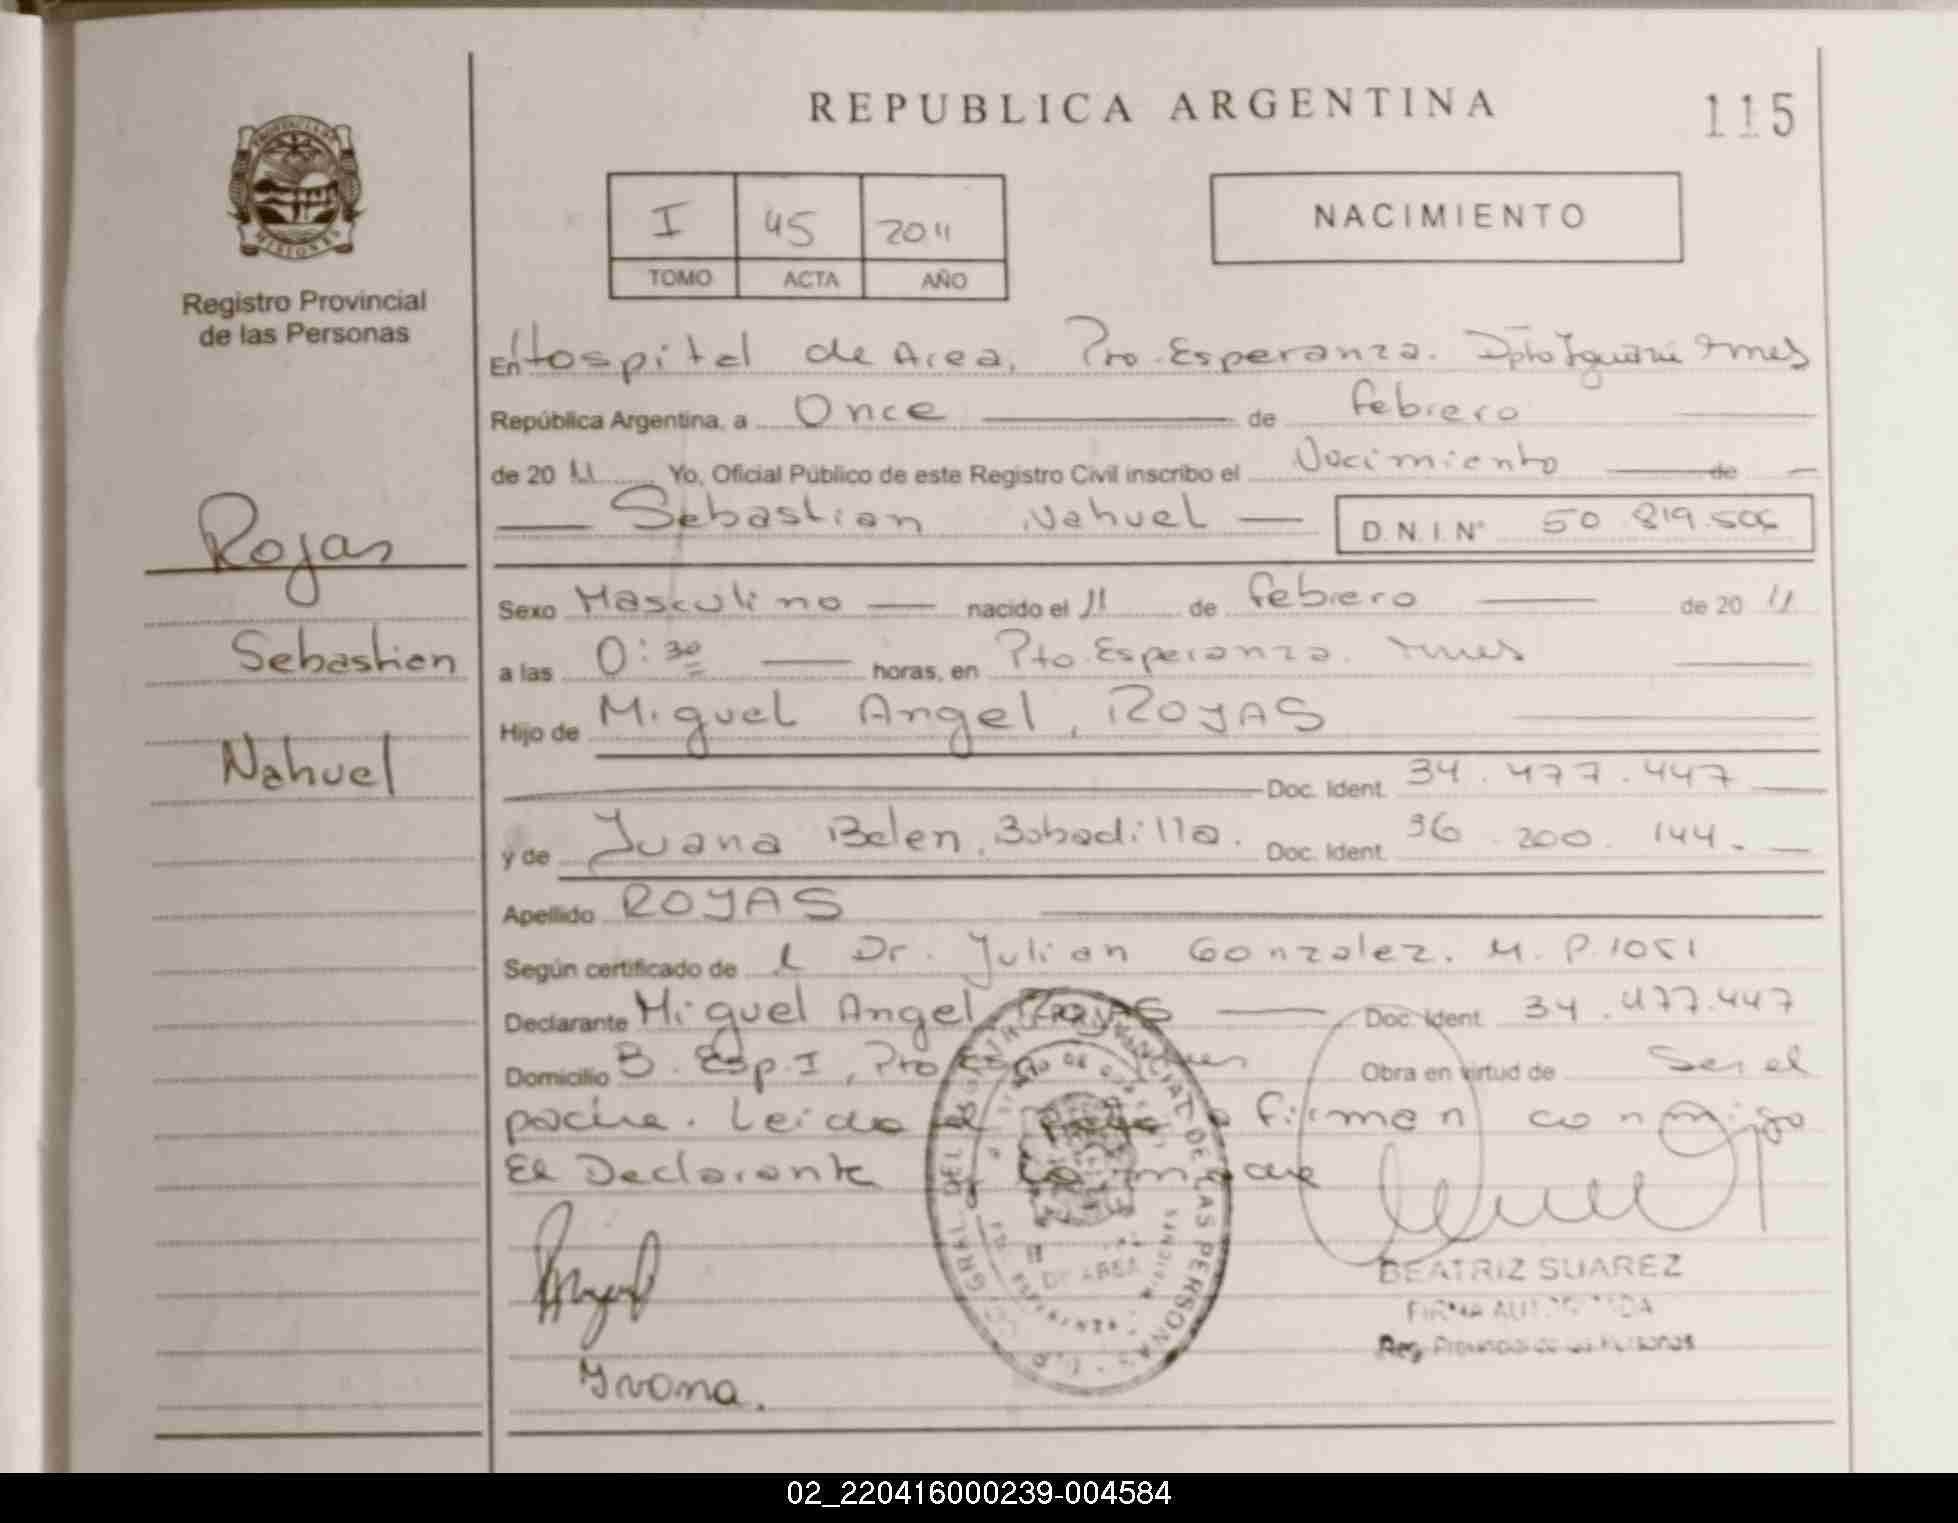 REPUBLICA ARGENTINA
115
I 45 2011
TOMO ACTA AÑO
NACIMIENTO
Registro Provincial
de las Personas
Rojas
Sebastian
Nahuel
En Hospital de Area, Pto. Esperanza. Dpto Iguazú Mnes
República Argentina, a Once de febrero
de 20 11 Yo, Oficial Público de este Registro Civil inscribo el Nacimiento de
Sebastian Nahuel D.N.I.N° 50.819.506
Sexo Masculino nacido el 11 de febrero de 20 11
a las 0:30 horas, en Pto. Esperanza. Mnes
Hijo de Miguel Angel, ROJAS
Doc. Ident. 34.477.447
y de Juana Belen, Bobadilla. Doc. Ident. 36.200.144.-
Apellido ROJAS
Según certificado de l Dr. Julian Gonzalez. M.P.1051
Declarante Miguel Angel ROJAS Doc. Ident. 34.477.447
Domicilio B. Esp. I, Pto Obra en virtud de Ser el
padre. Leida el firman conmigo
El Declarante y la madre
Juana.
BEATRIZ SUAREZ
FIRMA AUTORIZADA
Reg. Provincial de las Personas
02_220416000239-004584